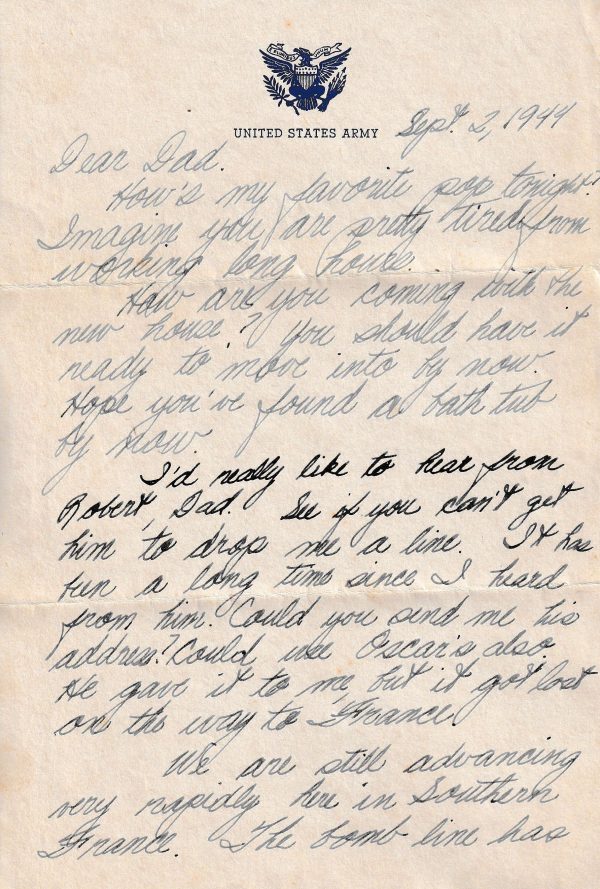 UNITED STATES ARMY
Sept. 2, 1944
Dear Dad.
How's my favorite pop tonight?
Imagine you are pretty tired from
working long hours.
How are you coming with the
new house? You should have it
ready to move into by now.
Hope you've found a bath tub
by now.
I'd really like to hear from
Robert, Dad. See if you can't get
him to drop me a line. It has
been a long time since I heard
from him. Could you send me his
address? Could use Oscar's also.
He gave it to me but it got lost
on the way to France.
We are still advancing
very rapidly here in Southern
France. The bomb line has